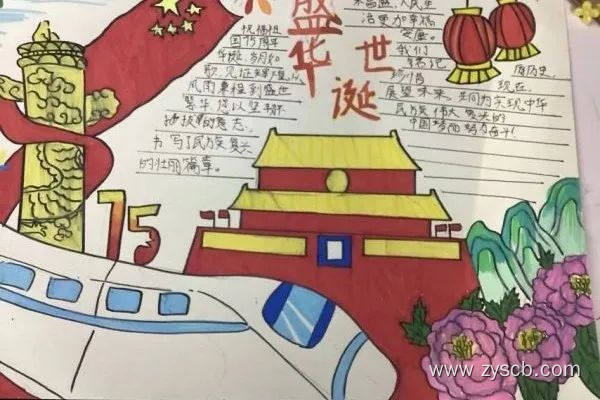 祝福祖
国75周年
华诞,岁月如
风雨兼程到盛世
繁华,您以坚韧
的意志,
书写了民族复兴
的壮丽篇章。
盛世
华诞
昌盛,人民生
活更加幸福
安康。
我们
历史,
珍惜现在,
展望未来,共同为实现中华
民族伟大复兴的
中国梦而努力奋斗!
75
www.zyscb.com